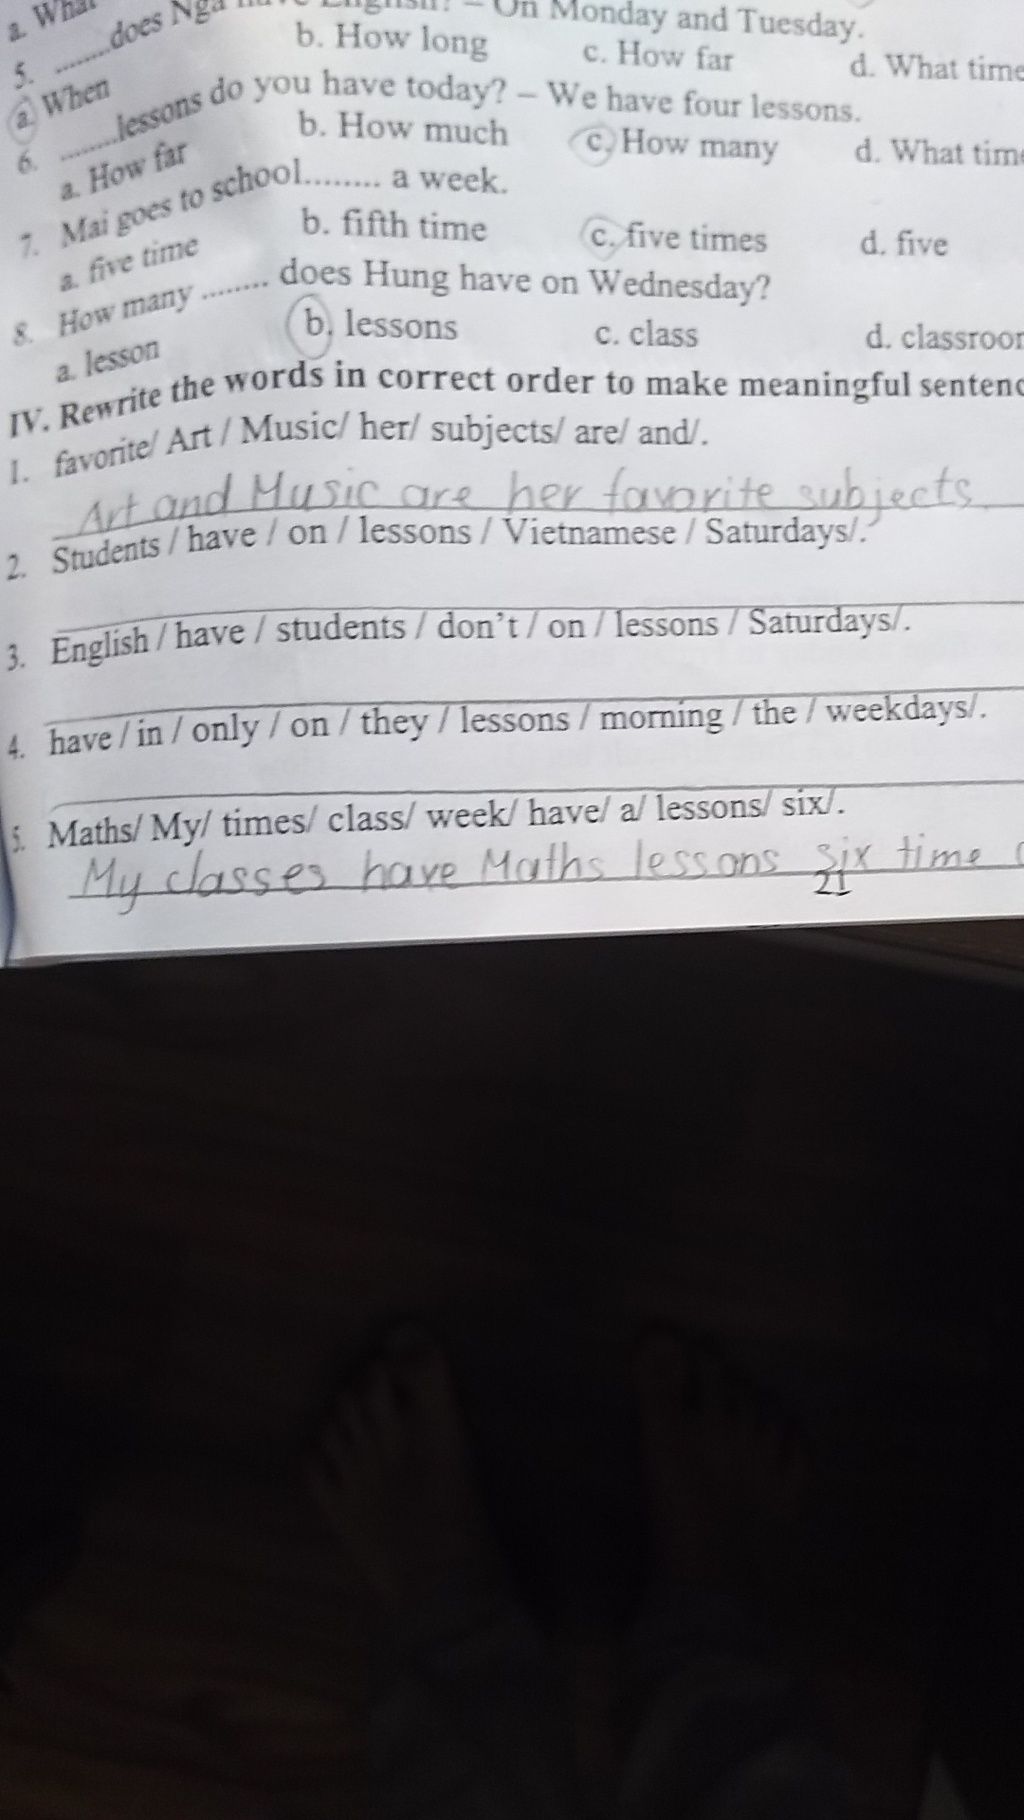 a. What
5. ........does Nga have English? – On Monday and Tuesday.
a. When b. How long c. How far d. What time
6. ........lessons do you have today? – We have four lessons.
a. How far b. How much c. How many d. What time
7. Mai goes to school........ a week.
a. five time b. fifth time c. five times d. five
8. How many ........ does Hung have on Wednesday?
a. lesson b. lessons c. class d. classroom
IV. Rewrite the words in correct order to make meaningful sentenc
1. favorite/ Art / Music/ her/ subjects/ are/ and/.
Art and Music are her favorite subjects.
2. Students / have / on / lessons / Vietnamese / Saturdays/.
3. English / have / students / don't / on / lessons / Saturdays/.
4. have / in / only / on / they / lessons / morning / the / weekdays/.
5. Maths/ My/ times/ class/ week/ have/ a/ lessons/ six/.
My classes have Maths lessons six time
21